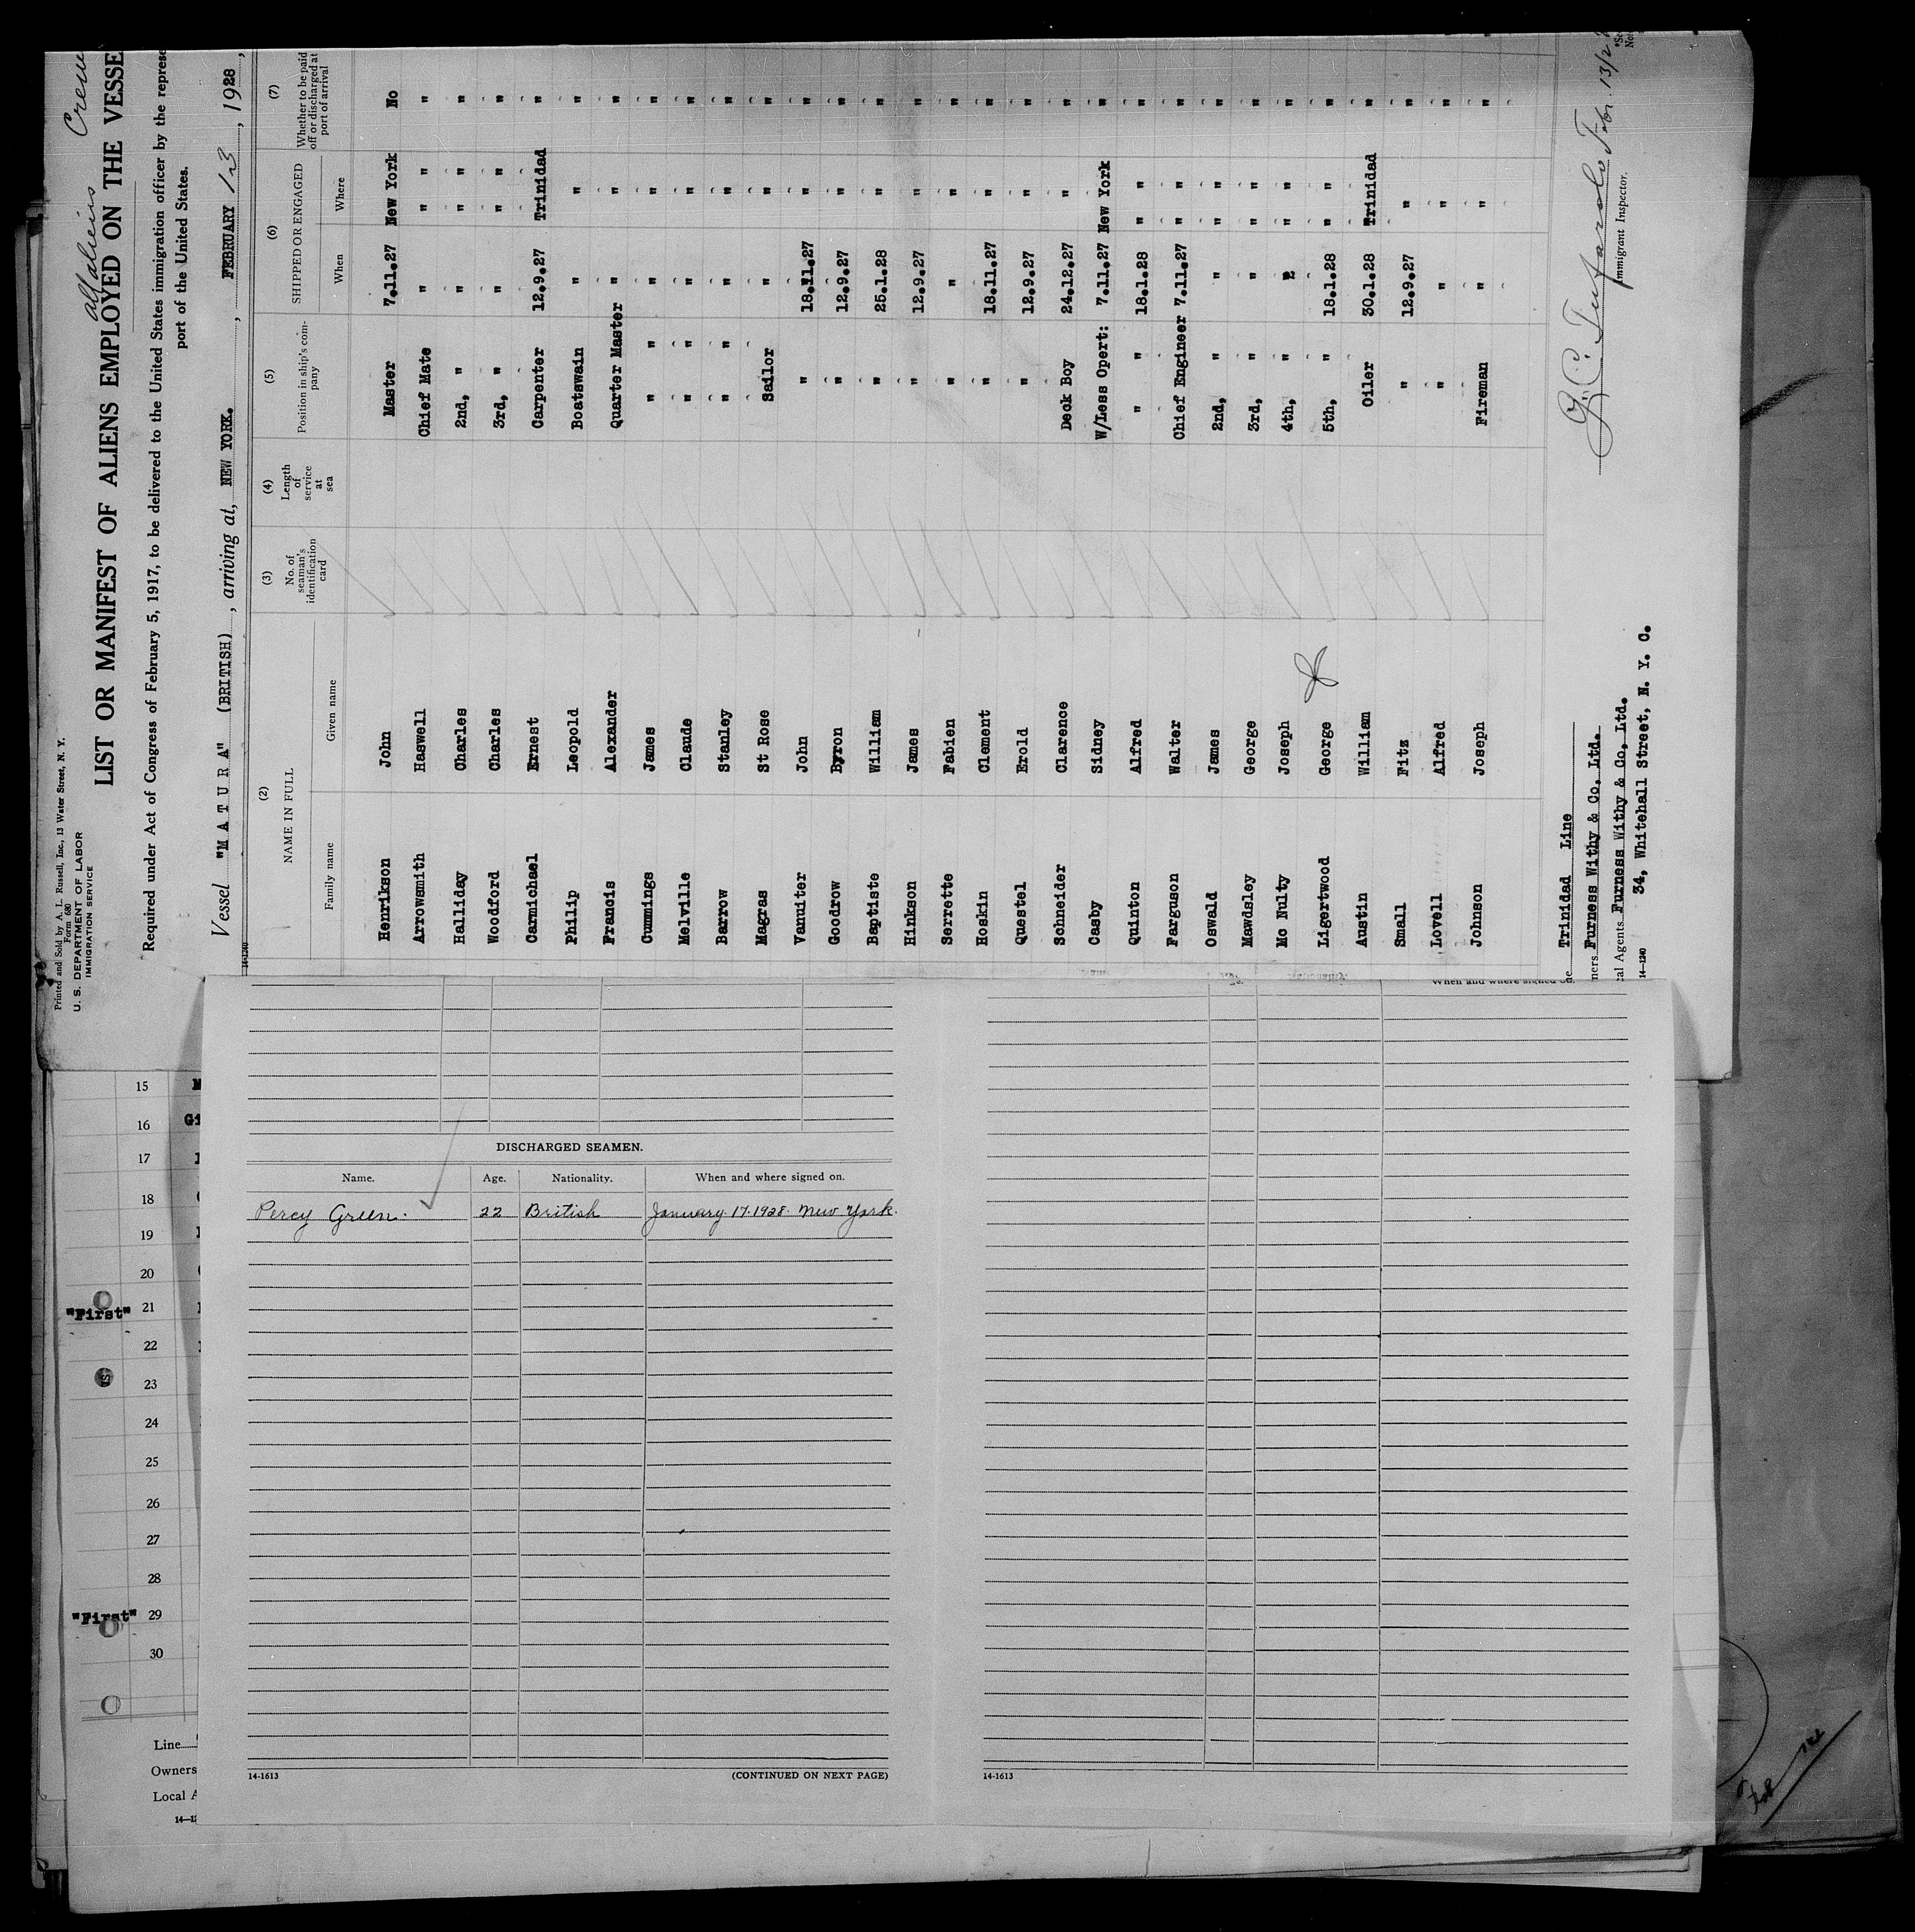 Printed and Sold by A. L. Russell, Inc., 13 Water Street, N. Y.
Form 680
U. S. DEPARTMENT OF LABOR
IMMIGRATION SERVICE
Crew
LIST OR MANIFEST OF ALIENS EMPLOYED ON THE VESSE
Required under Act of Congress of February 5, 1917, to be delivered to the United States immigration officer by the represe
port of the United States.
Vessel "M A T U R A" (BRITISH), arriving at, NEW YORK., FEBRUARY 13, 1928,
14-1240
(2) (3) (4) (5) (6) (7)
NAME IN FULL No. of seaman's identification card Length of service at sea Position in ship's company SHIPPED OR ENGAGED Whether to be paid off or discharged at port of arrival
Family name Given name When Where
Henrikson John Master 7.11.27 New York No
Arrowsmith Haswell Chief Mate " " " "
Halliday Charles 2nd, " " " " "
Woodford Charles 3rd, " " " " "
Carmichael Ernest Carpenter 12.9.27 Trinidad "
Philip Leopold Boatswain " " "
Francis Alexander Quarter Master " " "
Cummings James " " " " "
Melville Claude " " " " "
Barrow Stanley " " " " "
Magras St Rose Sailor " " "
Vanuiter John " 18.11.27 " "
Goodrow Byron " 12.9.27 " "
Baptiste William " 25.1.28 " "
Hinkson James " 12.9.27 " "
Serrette Fabien " " " "
Hoskin Clement " 18.11.27 " "
Questel Erold " 12.9.27 " "
Schneider Clarence Deck Boy 24.12.27 " "
Casby Sidney W/Less Opert: 7.11.27 New York "
Quinton Alfred " " 18.1.28 " " "
Farguson Walter Chief Engineer 7.11.27 " " "
Oswald James 2nd, " " " " "
Mawdsley George 3rd, " " " " "
Mc Nulty Joseph 4th, " " " " "
Ligertwood George 5th, " 18.1.28 " " "
Austin William Oiler 30.1.28 Trinidad "
Small Fitz " 12.9.27 " "
Lovell Alfred " " " "
Johnson Joseph Fireman " " "
ne Trinidad Line
ners Furness Withy & Co. Ltd.
cal Agents Furness Withy & Co. Ltd.
34, Whitehall Street, N. Y. C.
14-1240
Immigrant Inspector.
When and where signed on.
DISCHARGED SEAMEN.
Name. Age. Nationality. When and where signed on.
Percy Green. 22 British January. 17. 1928. New York.
14-1613 (CONTINUED ON NEXT PAGE)
14-1613
15 M
16 Gi
17
18
19
20
"First" 21
22
23
24
25
26
27
28
"First" 29
30
Line
Owners
Local A
14-12